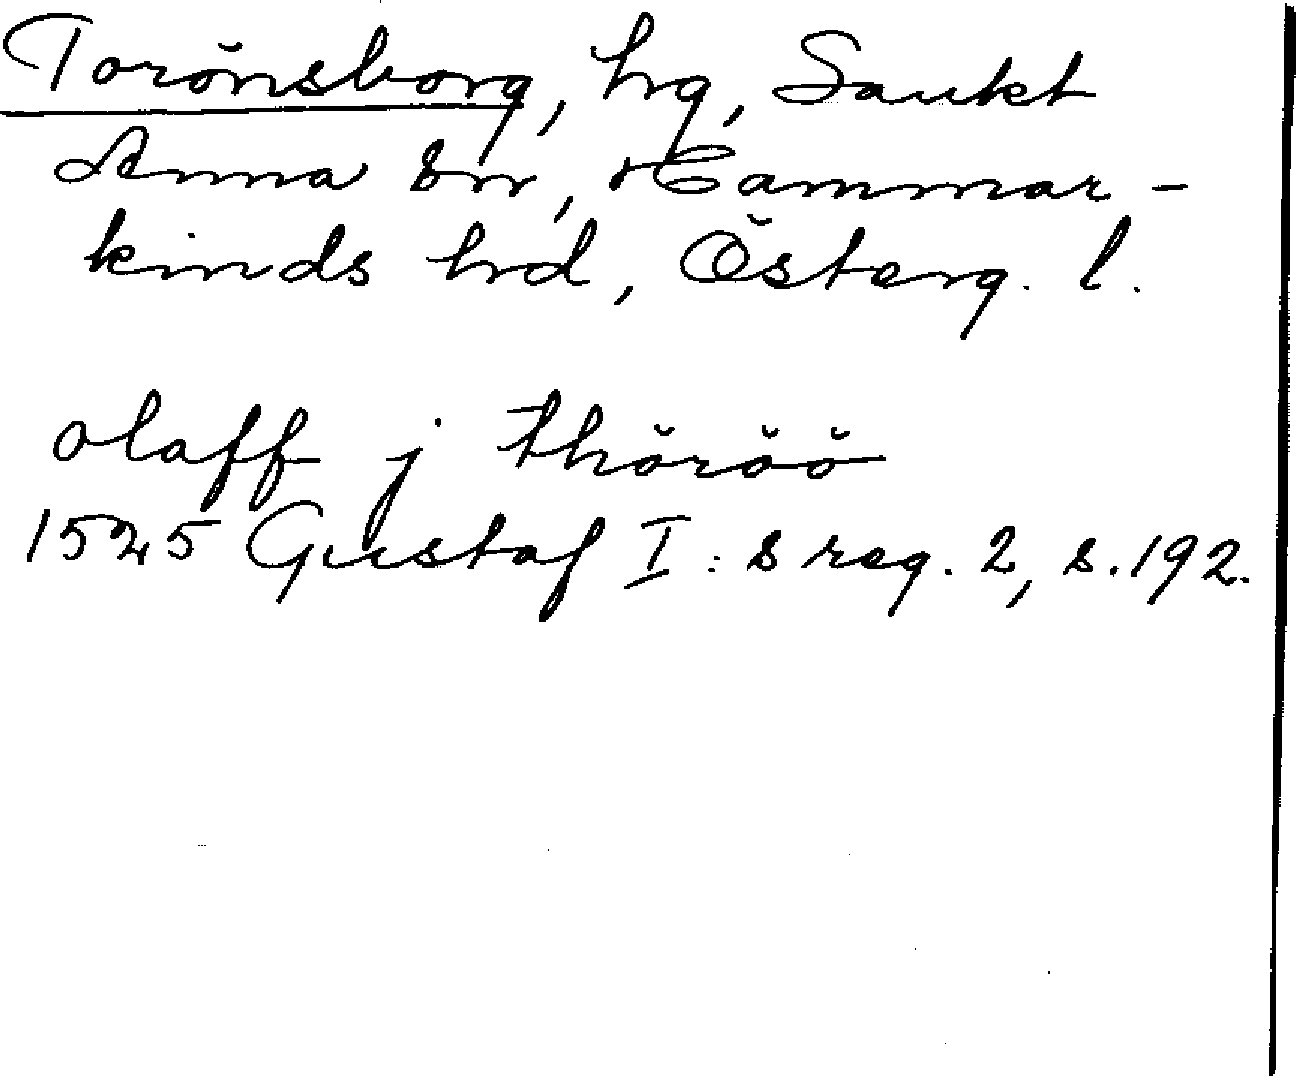 Torönsborg, hg, Sankt
Anna sn, Hammar-
kinds hd, Österg. l.
olaff j thöröö
1525 Gustaf I:s reg. 2, s. 192.